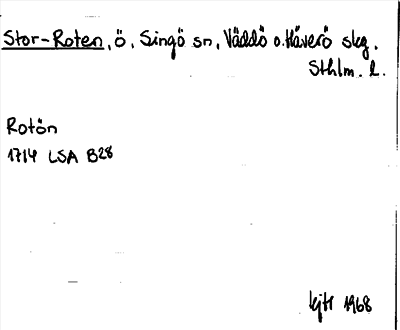 Stor-Roten, ö, Singö sn, Väddö o. Häverö skg.
Sthlm. l.
Rotön
1714 LSA B28
1968